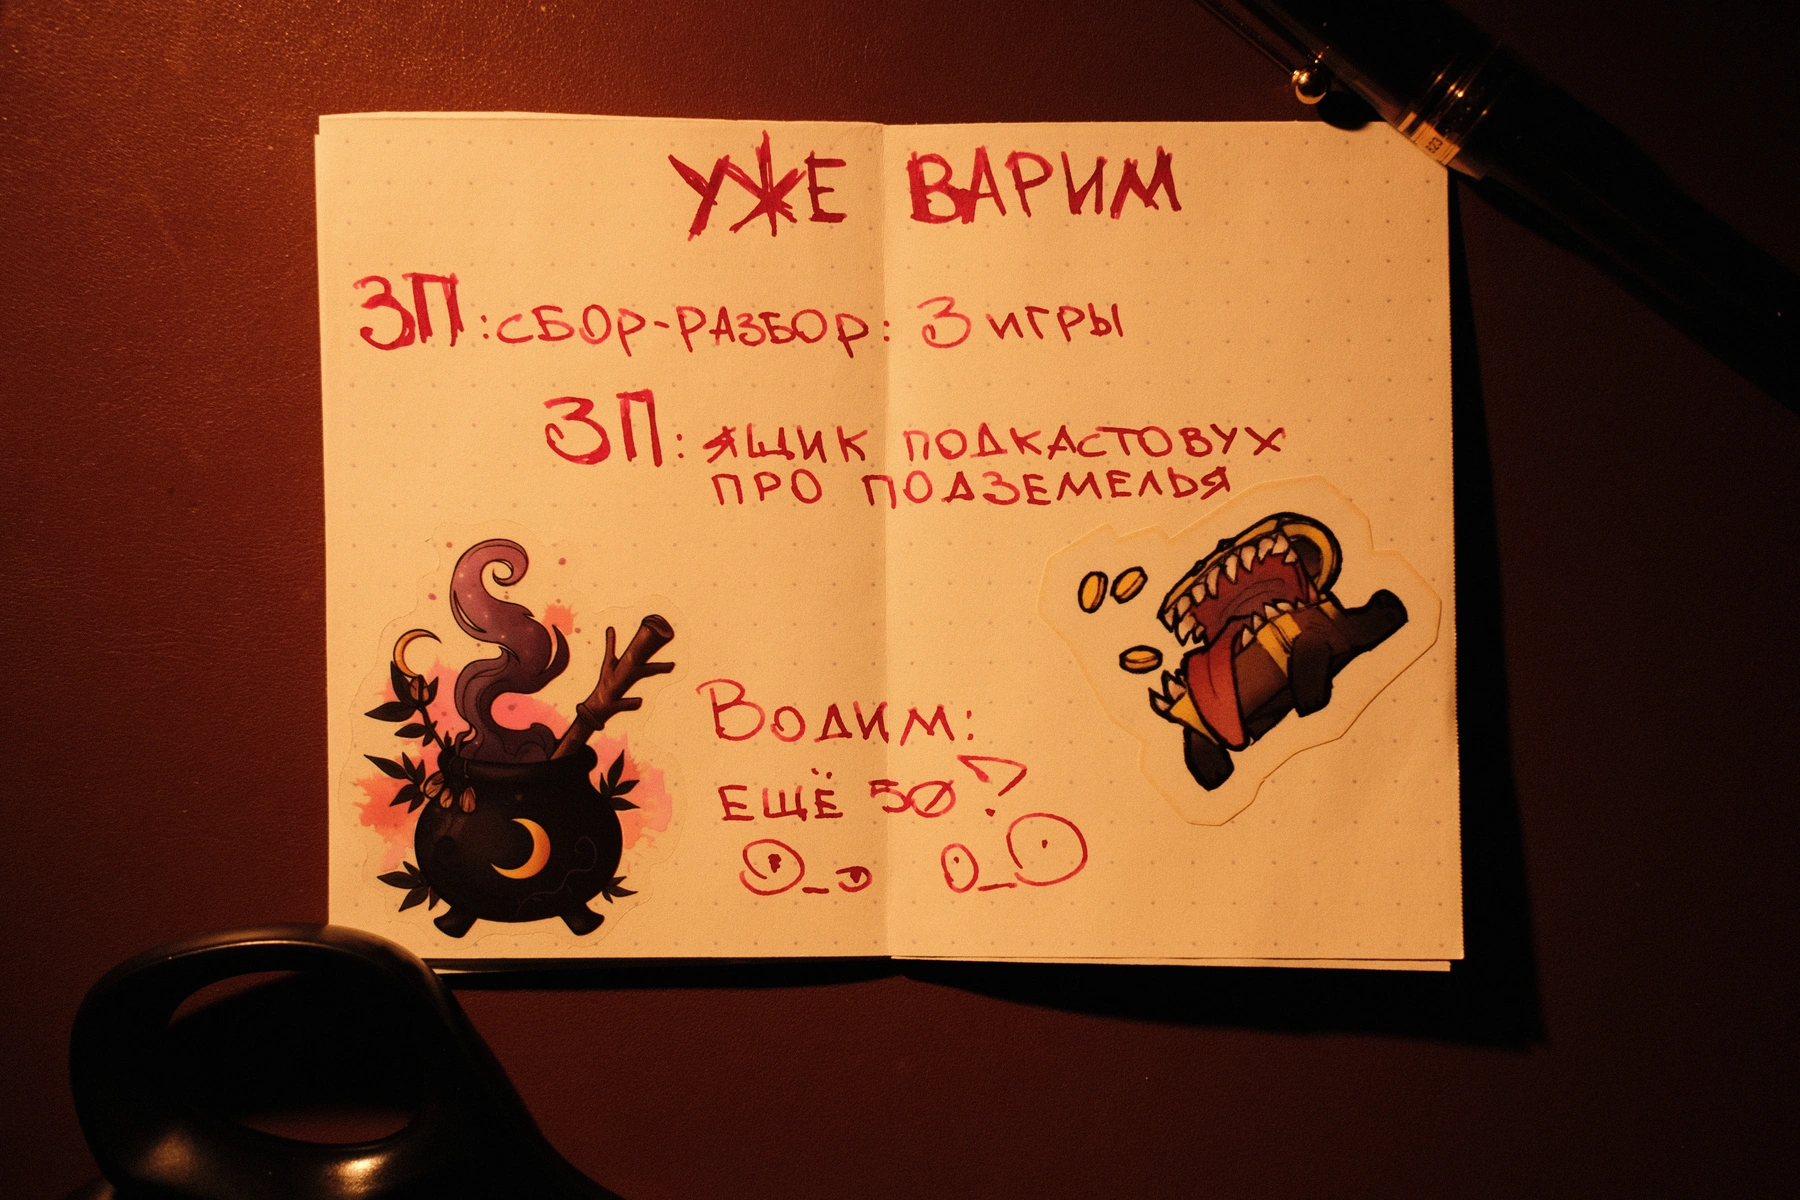 УЖЕ ВАРИМ
ЗП: СБОР-РАЗБОР: 3 ИГРЫ
ЗП: ЯЩИК ПОДКАСТОВУХ
ПРО ПОДЗЕМЕЛЬЯ
ВОДИМ:
ЕЩЁ 50?
О_о О_О
823